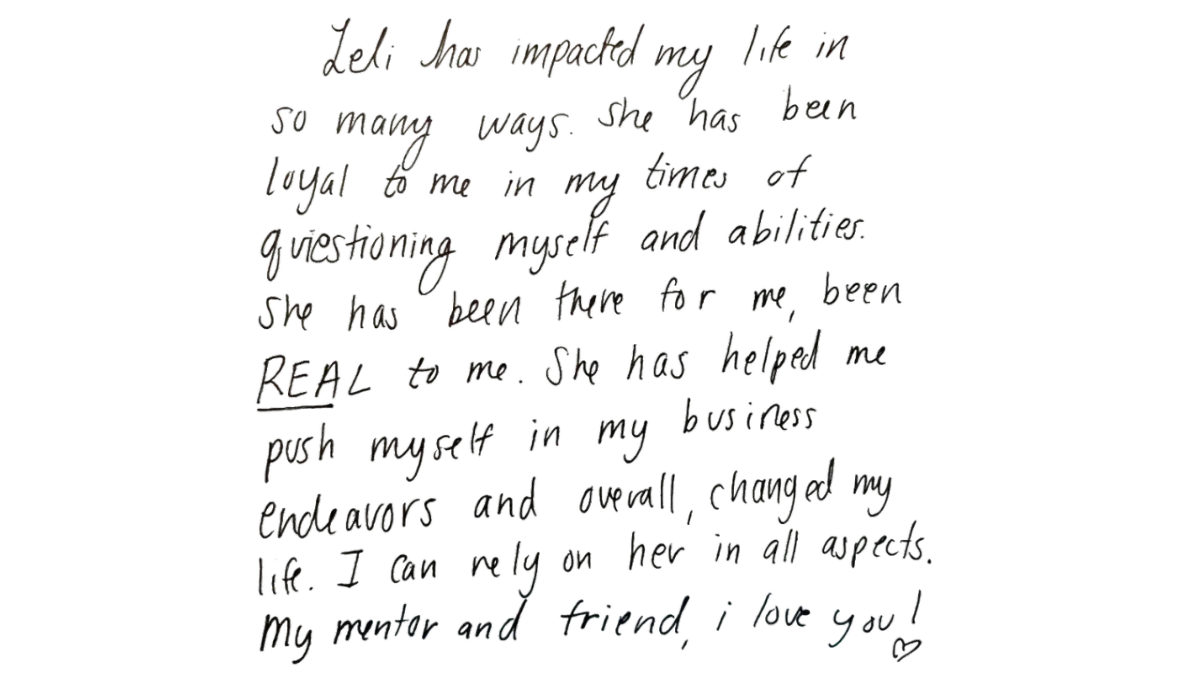 Leli has impacted my life in
so many ways. She has been
loyal to me in my times of
quiestioning myself and abilities.
She has been there for me, been
REAL to me. She has helped me
push myself in my business
endeavors and overall, changed my
life. I can rely on her in all aspects.
My mentor and friend, i love you!
♡